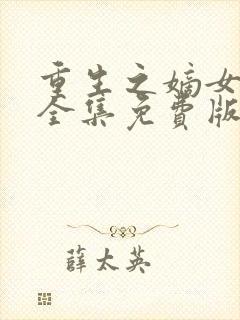 重生之嫡女
全集免费版
薛太英